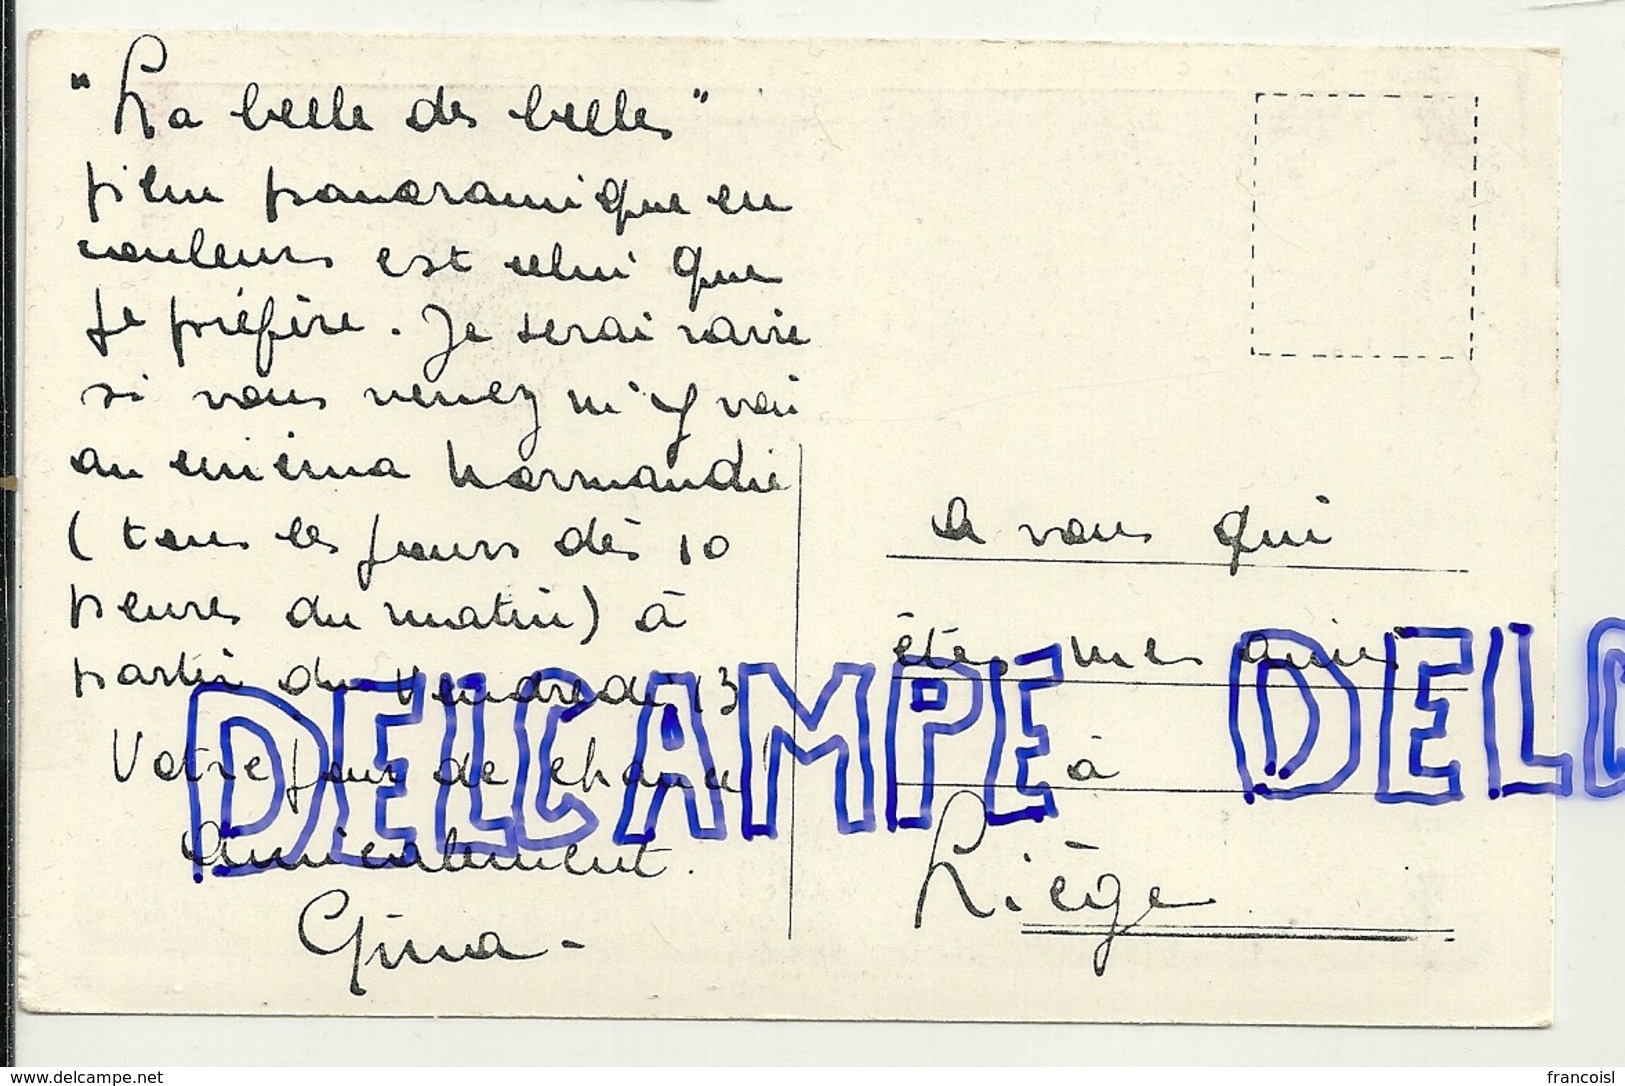 "La belle des belles"
film panoramique en
couleurs est celui que
je préfère. Je serai ravie
si vous venez m'y voir
au cinéma Normandie
(tous les jours dès 10
heures du matin) à
partir du Vendredi 13
Votre jour de chance!
Amicalement.
Gina-
A vous qui
êtes mes amis
à
Liège
DELCAMPE DELC
www.delcampe.net
francoisl